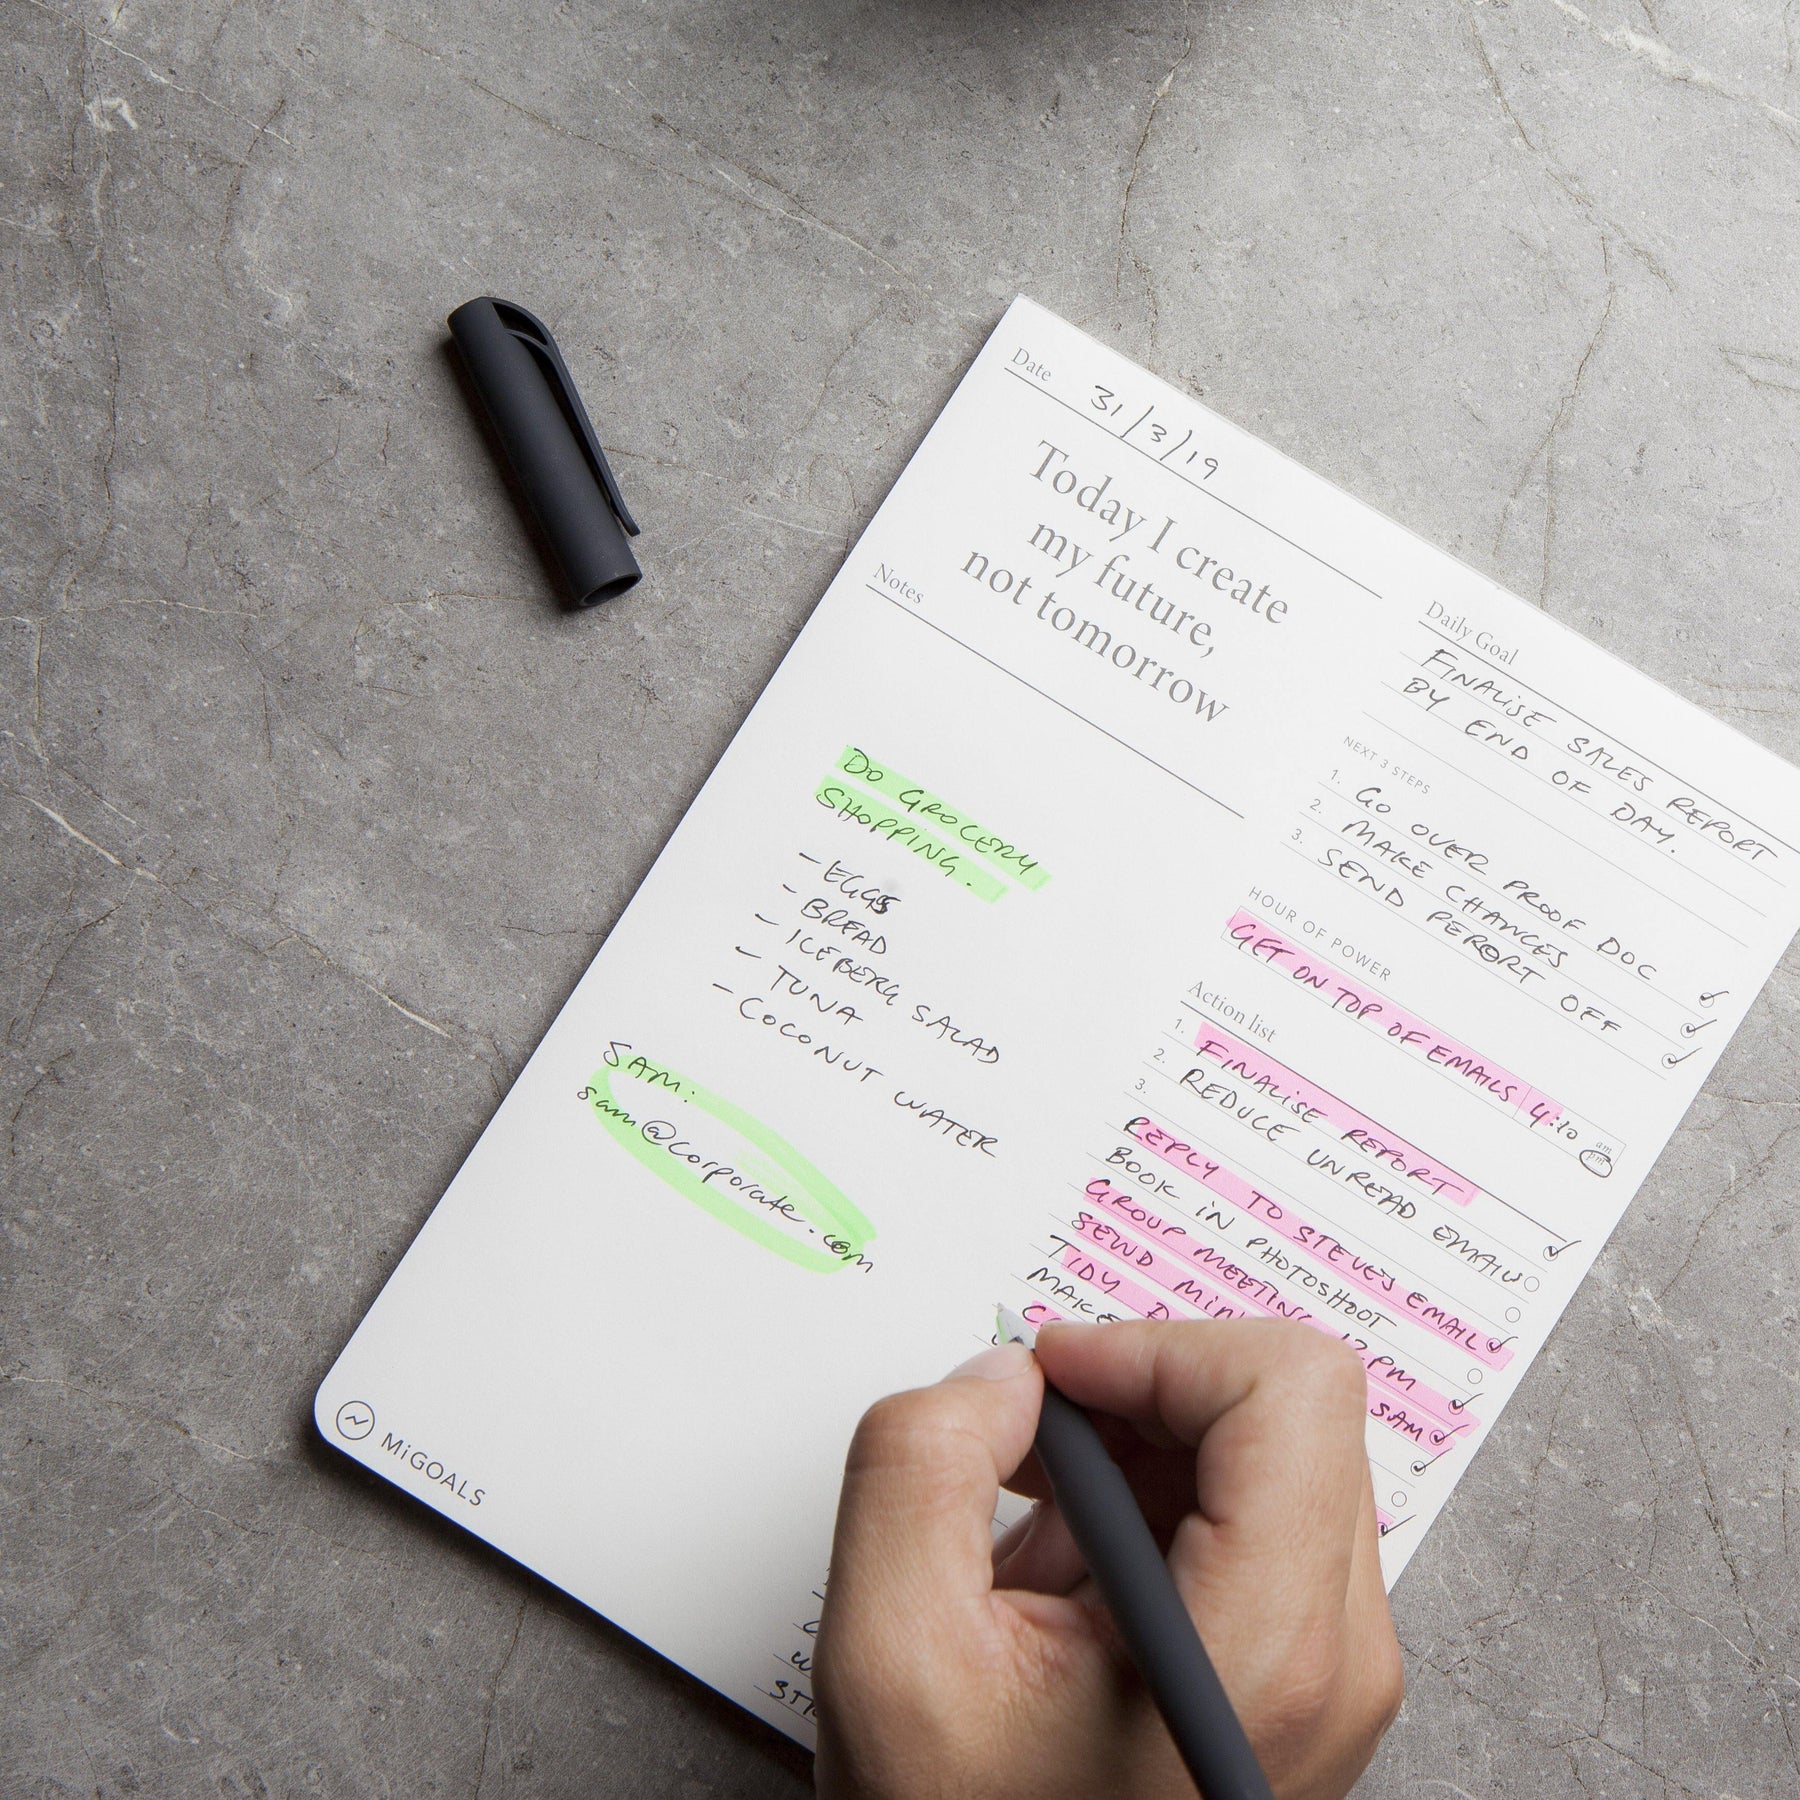 Date 31/3/19
Today I create
my future,
not tomorrow
Notes
DO GROCERY
SHOPPING.
- EGGS
- BREAD
- ICEBERG SALAD
- TUNA
- COCONUT WATER
SAM:
sam@corporate.com
MiGOALS
Daily Goal
FINALISE SALES REPORT
BY END OF DAY.
NEXT 3 STEPS
1. GO OVER PROOF DOC
2. MAKE CHANGES
3. SEND REPORT OFF
HOUR OF POWER
GET ON TOP OF EMAILS 4:10 am pm
Action list
1. FINALISE REPORT
2. REDUCE UNREAD EMAILS
3.
REPLY TO STEVE'S EMAIL
BOOK IN PHOTOSHOOT
GROUP MEETING 12PM
SEND SAM
TIDY
MAKE